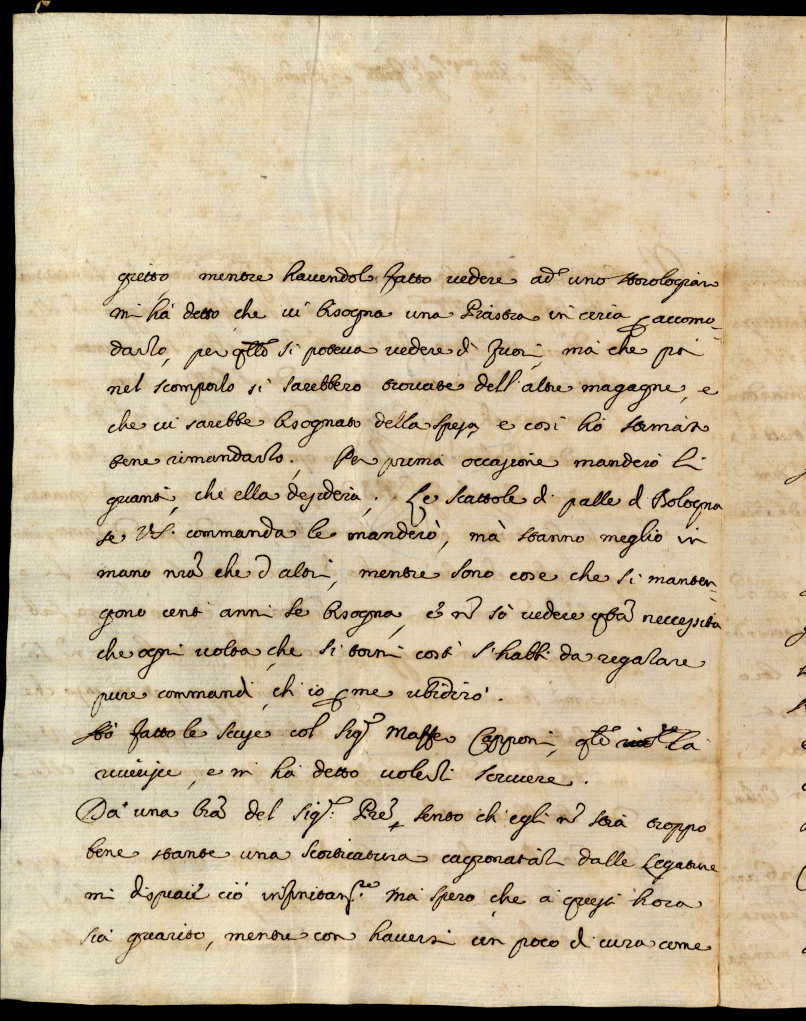 gretto, mentre havendol fatto vedere ad uno storologiaro
mi há detto che vi bisogna una Piastra in ceria p accomo-
darlo, per qsto si poteva vedere di fuori, má che poi
nel scomporlo si sarebbero trovate dell'altre magagne, e
che vi sarebbe bisognato della spesa, e cosi hó stimato
bene rimandarlo. Per prima occasione manderó li
guanti, che ella desidera. Le scattole di palle di Bologna
se V.S. commanda le manderó, má stanno meglio in
mano nra che d'altri, mentre sono cose che si manten-
gono cento anni se bisogna, e nō só vedere qsta necessita
che ogni volta che si torni costi s'habbi da regalare
pure commandi, ch'io p me ubidiró.
Hó fatto le scuse col Sigr Maffeo Capponi, qle la
riverisce, e mi ha detto volerli scrivere.
Da una lra del Sigr: Pre, sento ch'egli nō stia troppo
bene stante una scorticatura cagionatali dalle legature
mi dispiace ció infinitamte ma spero che a quest'hora
sia guarito, mentre con haversi un poco di cura come